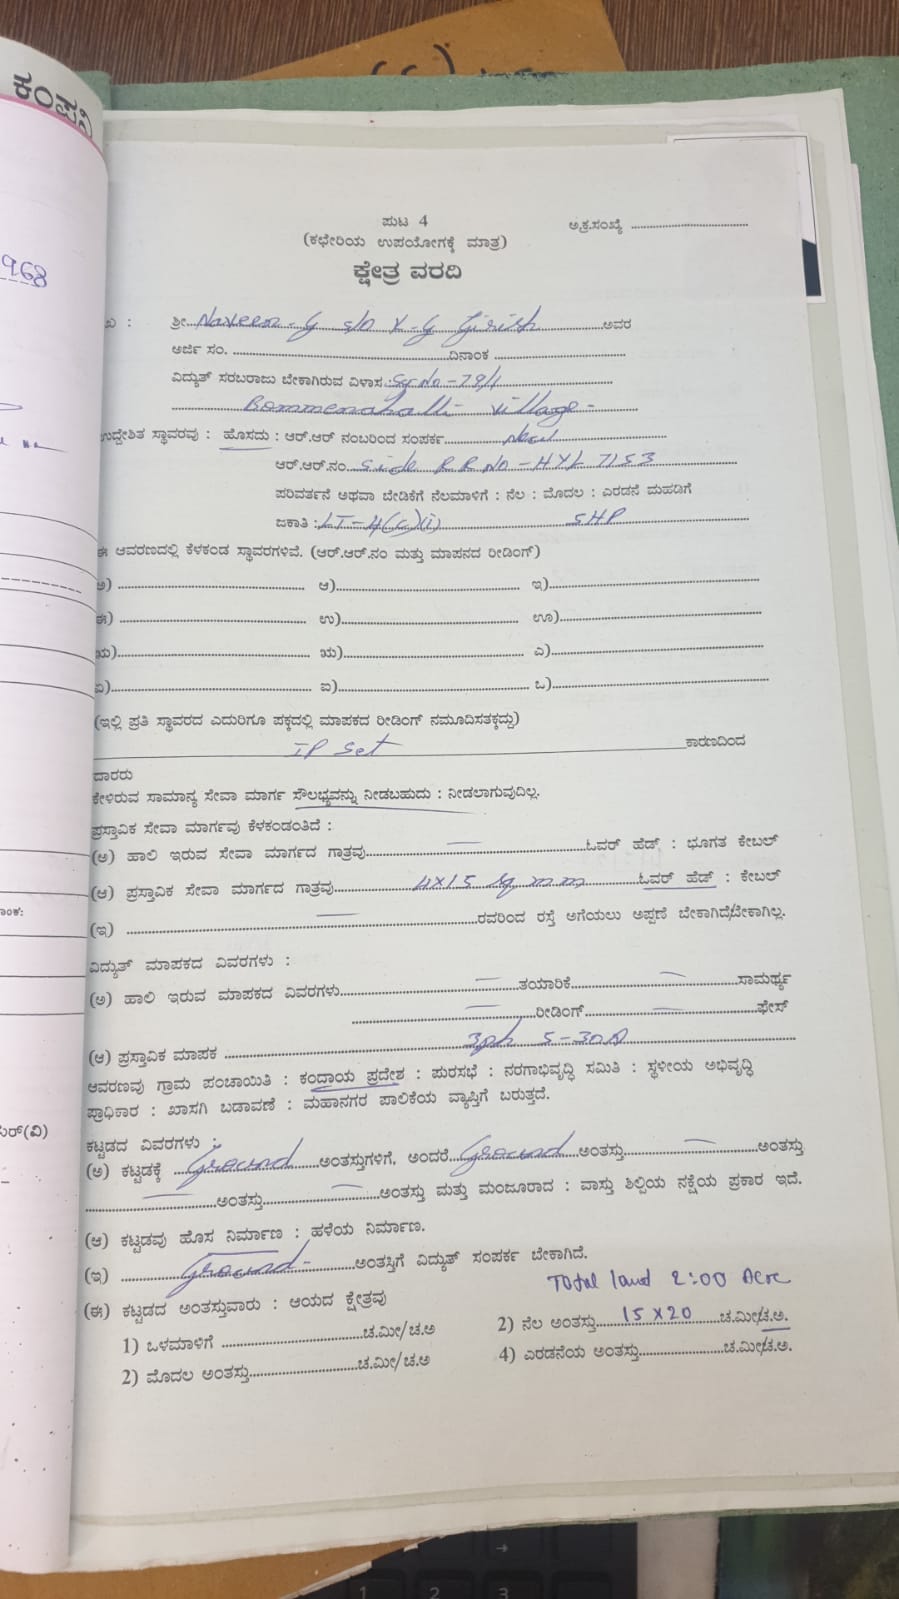 ಕಂಪನಿ
968
ಪುಟ 4
ಅ.ಕ್ರ.ಸಂಖ್ಯೆ ..............................
(ಕಛೇರಿಯ ಉಪಯೋಗಕ್ಕೆ ಮಾತ್ರ)
ಕ್ಷೇತ್ರ ವರದಿ
ಶ್ರೀ...Naveen-G s/o K-G Girish..................ಅವರ
ಅರ್ಜಿ ಸಂ. ............................................................ದಿನಾಂಕ ....................................
ವಿದ್ಯುತ್ ಸರಬರಾಜು ಬೇಕಾಗಿರುವ ವಿಳಾಸ :Sy No-79/1
Bommenahalli village-
ಉದ್ದೇಶಿತ ಸ್ಥಾವರವು : ಹೊಸದು : ಆರ್.ಆರ್ ನಂಬರಿಂದ ಸಂಪರ್ಕ
ಆರ್.ಆರ್.ನಂ. Side RR No-HYL 7153
ಪರಿವರ್ತನೆ ಅಥವಾ ಬೇಡಿಕೆಗೆ ನೆಲಮಾಳಿಗೆ : ನೆಲ : ಮೊದಲ : ಎರಡನೆ ಮಹಡಿಗೆ
ಜಕಾತಿ : LT-4(c)(i) 5HP
ಈ ಆವರಣದಲ್ಲಿ ಕೆಳಕಂಡ ಸ್ಥಾವರಗಳಿವೆ. (ಆರ್.ಆರ್.ನಂ ಮತ್ತು ಮಾಪನದ ರೀಡಿಂಗ್)
ಅ) .......................................... ಆ).......................................... ಇ)..........................................
ಈ) .......................................... ಉ).......................................... ಊ)..........................................
ಋ).......................................... ಋ).......................................... ಎ)..........................................
ಏ).......................................... ಐ).......................................... ಒ)..........................................
(ಇಲ್ಲಿ ಪ್ರತಿ ಸ್ಥಾವರದ ಎದುರಿಗೂ ಪಕ್ಕದಲ್ಲಿ ಮಾಪಕದ ರೀಡಿಂಗ್ ನಮೂದಿಸತಕ್ಕದ್ದು)
IP Set ಕಾರಣದಿಂದ
ದಾರರು
ಕೇಳಿರುವ ಸಾಮಾನ್ಯ ಸೇವಾ ಮಾರ್ಗ ಸೌಲಭ್ಯವನ್ನು ನೀಡಬಹುದು : ನೀಡಲಾಗುವುದಿಲ್ಲ.
ಪ್ರಸ್ತಾವಿಕ ಸೇವಾ ಮಾರ್ಗವು ಕೆಳಕಂಡಂತಿದೆ :
(ಅ) ಹಾಲಿ ಇರುವ ಸೇವಾ ಮಾರ್ಗದ ಗಾತ್ರವು..........—..........ಓವರ್ ಹೆಡ್ : ಭೂಗತ ಕೇಬಲ್
(ಆ) ಪ್ರಸ್ತಾವಿಕ ಸೇವಾ ಮಾರ್ಗದ ಗಾತ್ರವು.......... 4x15 sq mm ..........ಓವರ್ ಹೆಡ್ : ಕೇಬಲ್
(ಇ) ..........—..........ರವರಿಂದ ರಸ್ತೆ ಅಗೆಯಲು ಅಪ್ಪಣೆ ಬೇಕಾಗಿದೆ/ಬೇಕಾಗಿಲ್ಲ.
ವಿದ್ಯುತ್ ಮಾಪಕದ ವಿವರಗಳು :
(ಅ) ಹಾಲಿ ಇರುವ ಮಾಪಕದ ವಿವರಗಳು..........—..........ತಯಾರಿಕೆ..........—..........ಸಾಮರ್ಥ್ಯ
..........—..........ರೀಡಿಂಗ್..........—..........ಫೇಸ್
(ಆ) ಪ್ರಸ್ತಾವಿಕ ಮಾಪಕ .......... 3ph 5-30A ..........
ಆವರಣವು ಗ್ರಾಮ ಪಂಚಾಯಿತಿ : ಕಂದಾಯ ಪ್ರದೇಶ : ಪುರಸಭೆ : ನರಗಾಭಿವೃದ್ಧಿ ಸಮಿತಿ : ಸ್ಥಳೀಯ ಅಭಿವೃದ್ಧಿ
ಪ್ರಾಧಿಕಾರ : ಖಾಸಗಿ ಬಡಾವಣೆ : ಮಹಾನಗರ ಪಾಲಿಕೆಯ ವ್ಯಾಪ್ತಿಗೆ ಬರುತ್ತದೆ.
ಕಟ್ಟಡದ ವಿವರಗಳು :
(ಅ) ಕಟ್ಟಡಕ್ಕೆ ..Ground..ಅಂತಸ್ತುಗಳಿಗೆ, ಅಂದರೆ..Ground..ಅಂತಸ್ತು..........—..........ಅಂತಸ್ತು
..........—..........ಅಂತಸ್ತು..........—..........ಅಂತಸ್ತು ಮತ್ತು ಮಂಜೂರಾದ : ವಾಸ್ತು ಶಿಲ್ಪಿಯ ನಕ್ಷೆಯ ಪ್ರಕಾರ ಇದೆ.
(ಆ) ಕಟ್ಟಡವು ಹೊಸ ನಿರ್ಮಾಣ : ಹಳೆಯ ನಿರ್ಮಾಣ.
(ಇ) ..........Ground-..........ಅಂತಸ್ತಿಗೆ ವಿದ್ಯುತ್ ಸಂಪರ್ಕ ಬೇಕಾಗಿದೆ.
Total land 2:00 Acre
(ಈ) ಕಟ್ಟಡದ ಅಂತಸ್ತುವಾರು : ಆಯದ ಕ್ಷೇತ್ರವು
1) ಒಳಮಾಳಿಗೆ ..............................ಚ.ಮೀ/ಚ.ಅ 2) ನೆಲ ಅಂತಸ್ತು......15 X 20......ಚ.ಮೀ/ಚ.ಅ.
2) ಮೊದಲ ಅಂತಸ್ತು..............................ಚ.ಮೀ/ಚ.ಅ 4) ಎರಡನೆಯ ಅಂತಸ್ತು....................ಚ.ಮೀ/ಚ.ಅ.
1 2 3